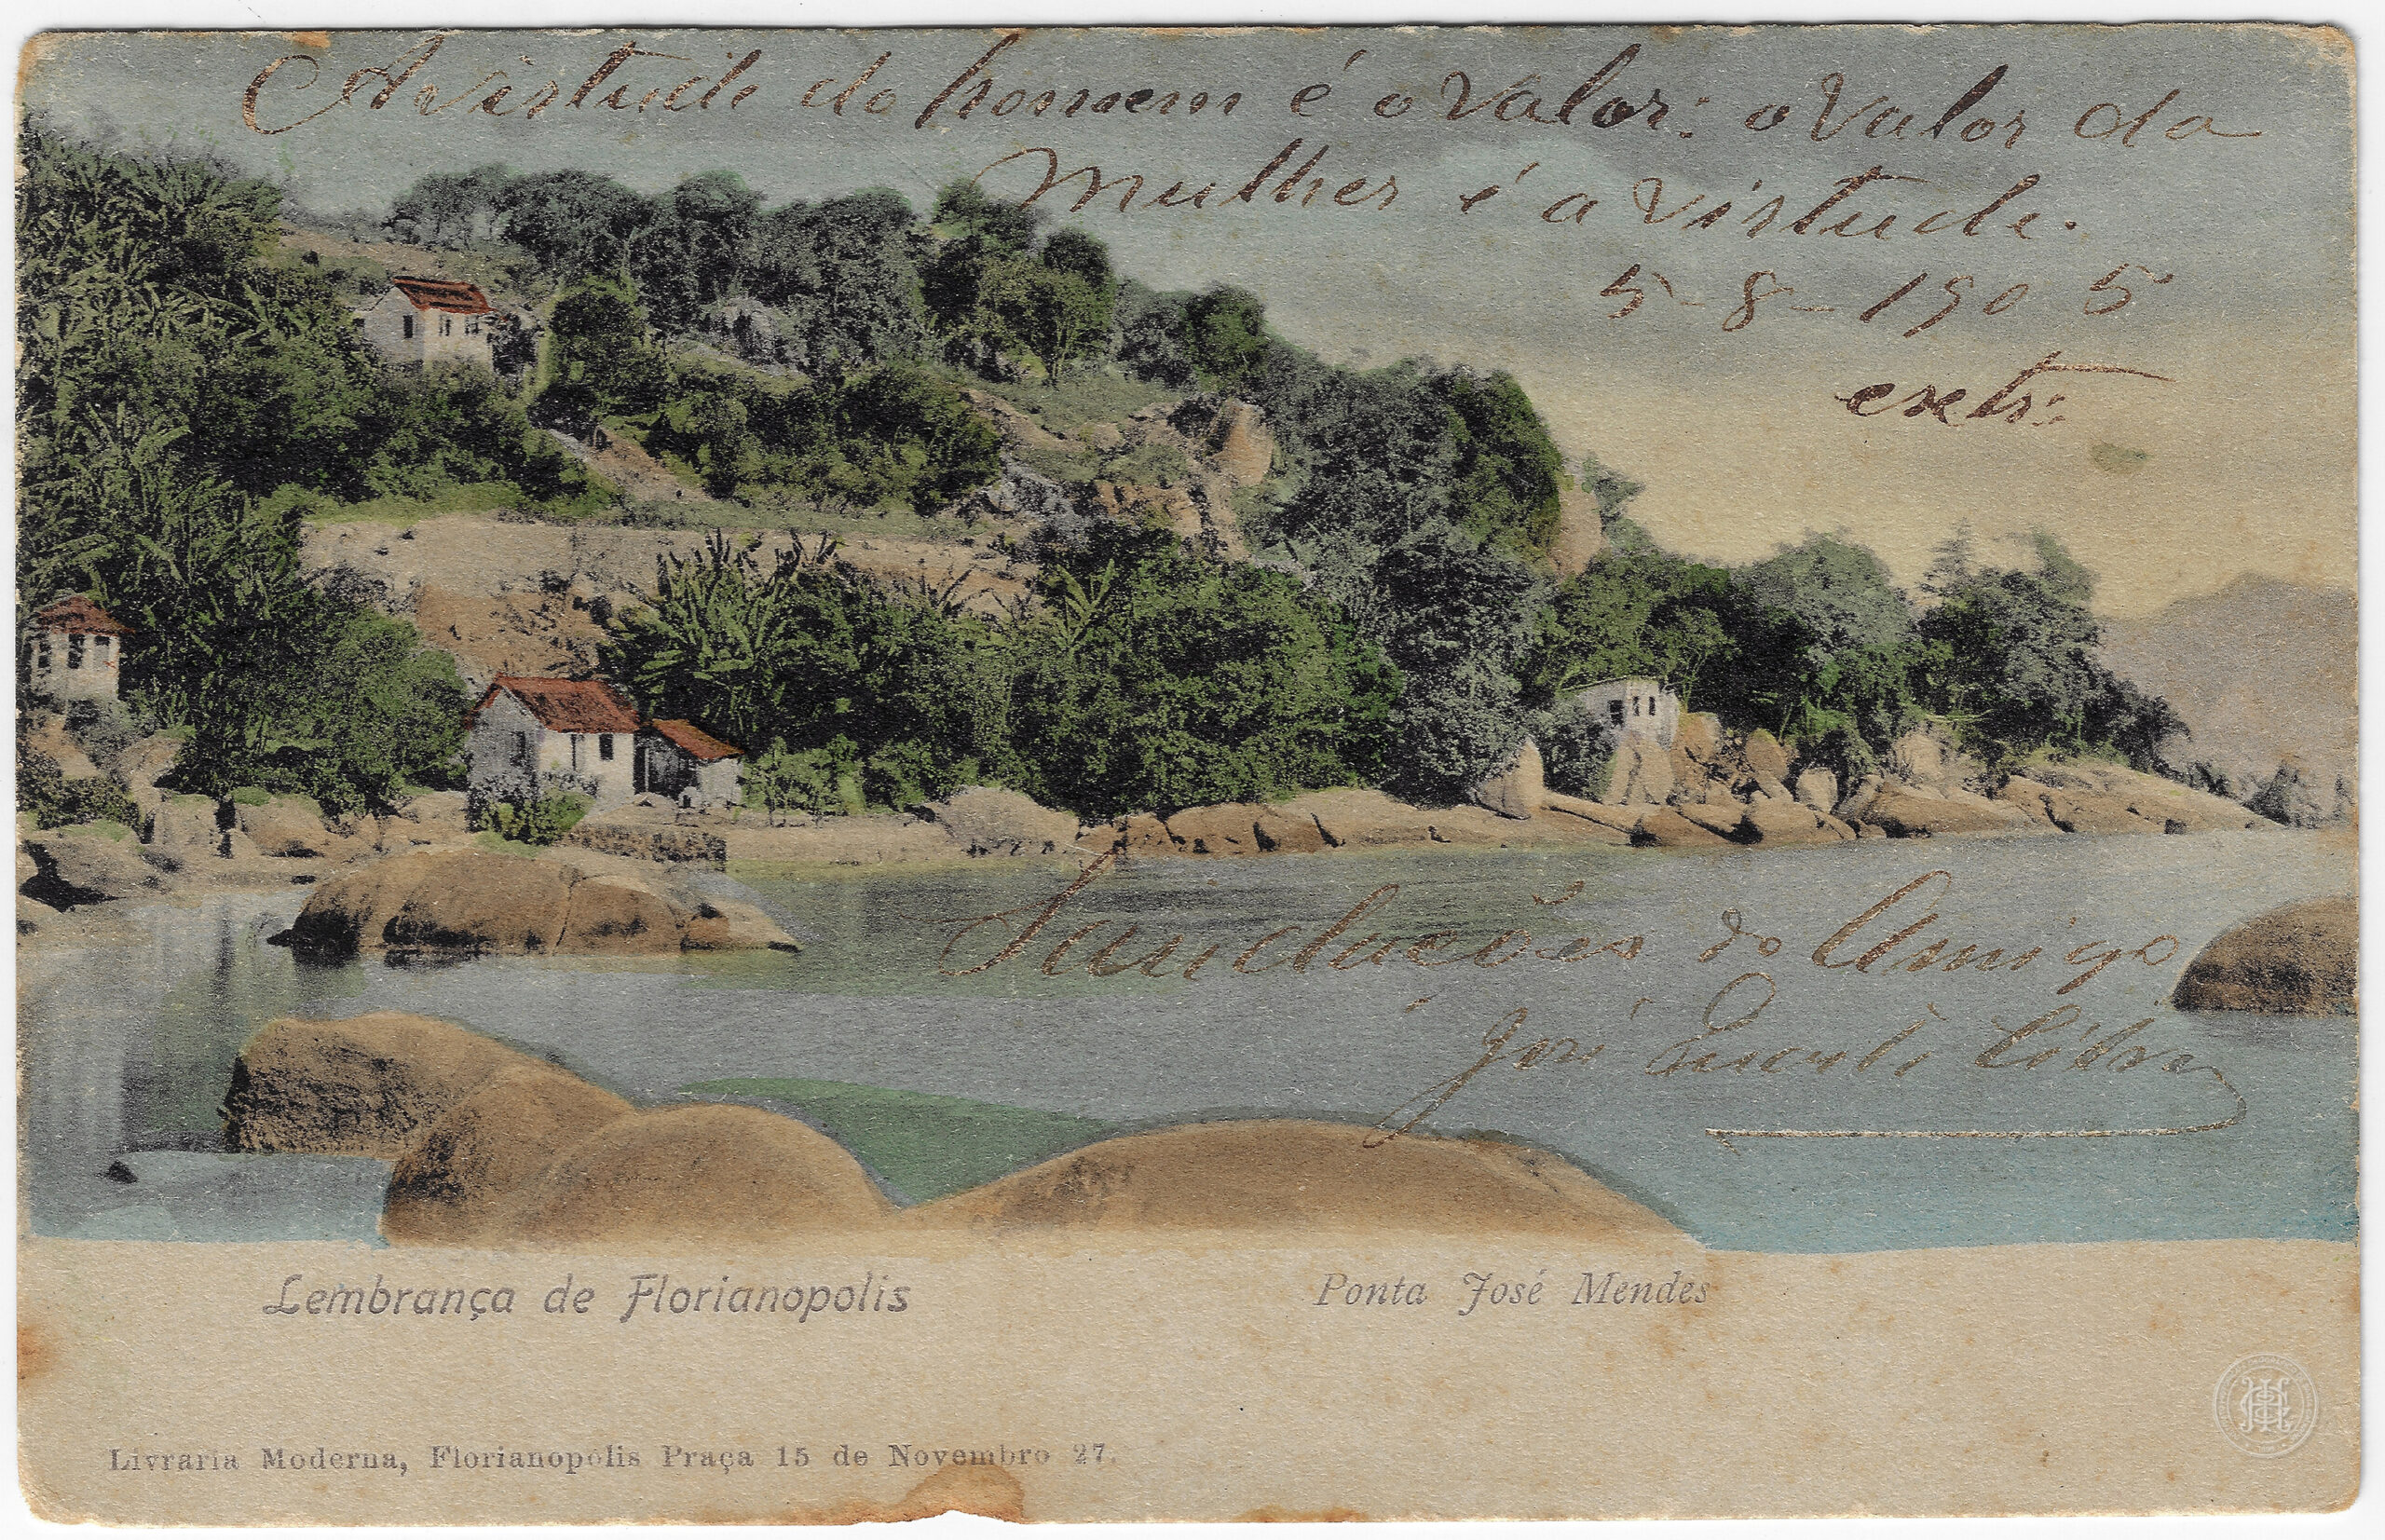 A virtude do homem é o valor: o valor da
Mulher é a virtude.
5-8-1905
extr:
Saudações do Amigo
José
Lembrança de Florianopolis
Ponta José Mendes
Livraria Moderna, Florianopolis Praça 15 de Novembro 27.